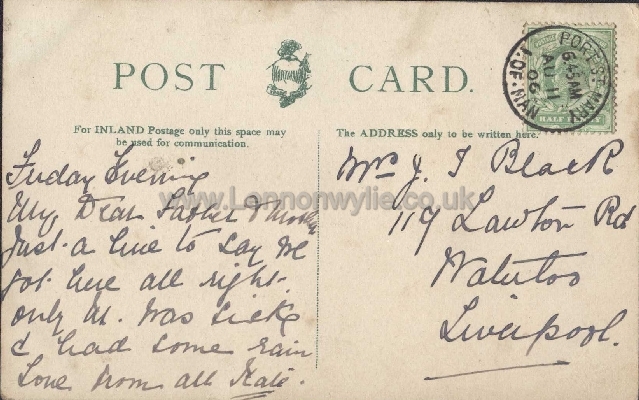 POST CARD.
For INLAND Postage only this space may
be used for communication.
The ADDRESS only to be written here.
PORT ST MARY
6.45 AM
AU 11
06
I. OF. MAN
HALF PENNY
www.Lennonwylie.co.uk
Friday Evening
My Dear Father & Mother
Just a line to say we
got here all right.
only M. was sick
& had some rain
Love from all Kate.
Mrs J. T Black
119 Lawton Rd
Waterloo
Liverpool.